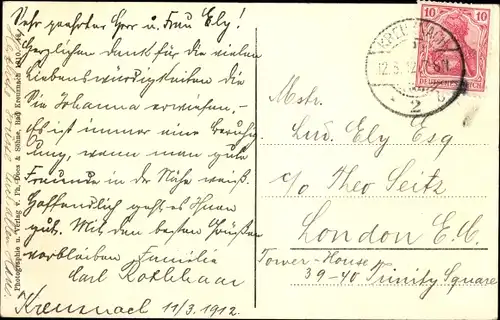 Sehr geehrter Herr u. Frau Ely!
Herzlichen Dank für die vielen
Liebenswürdigkeiten die
Sie Johanna erwiesen,
es ist immer eine Beruhig
ung, wenn man gute
Freunde in der Nähe weiß.
Hoffentlich geht es Ihnen
gut. Mit den besten Grüßen
verbleiben Familie
Carl Rothhaar
Kreuznach 11/3. 1912.
Photographie u. Verlag v. Ph. Dees & Söhne, Bad Kreuznach 1910.
KREUZNACH
12.3.12
2
b
10 10
DEUTSCHES REICH
Mstr.
Lud. Ely Esq
c/o Theo Seitz
London E.C.
Tower-House
39-40 Trinity Square